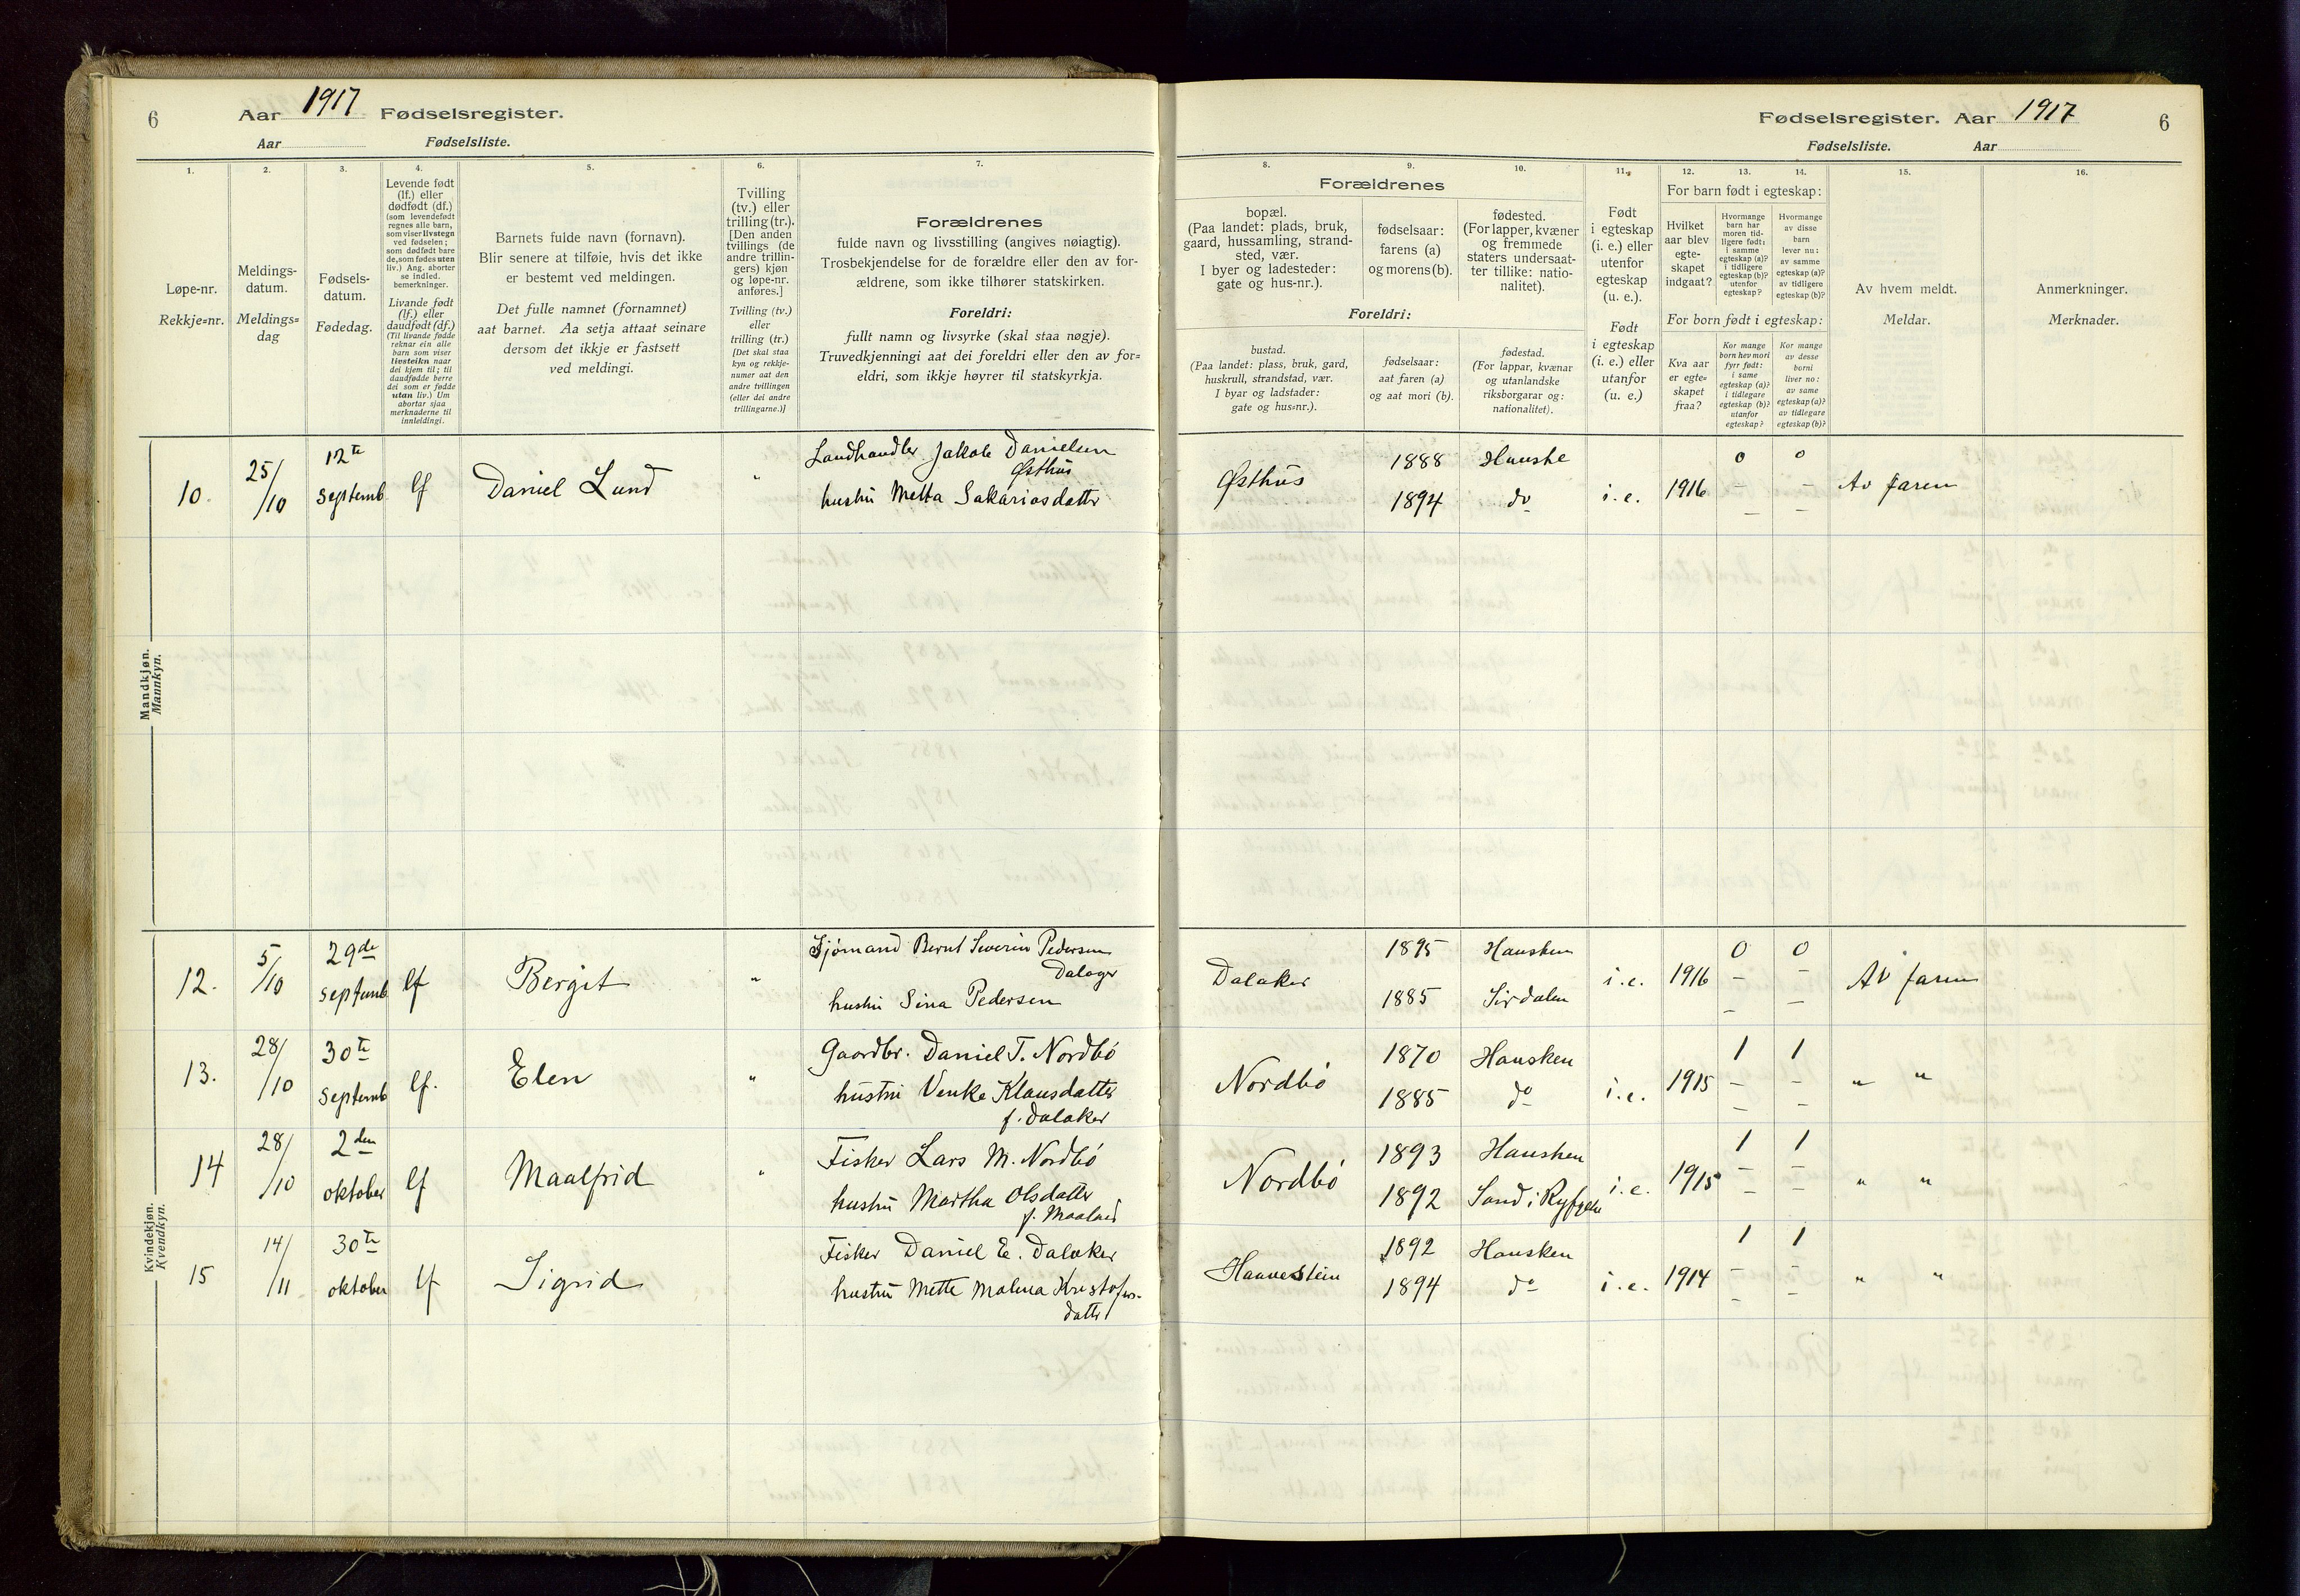 6
Aar 1917 Fødselsregister.
Aar Fødselsliste.
1.
2.
3.
4.
5.
6.
7.
Løpe-nr.
Rekkje=nr.
Meldings-
datum.
Meldings=
dag
Fødsels-
datum.
Fødedag.
Levende født
(lf.) eller
dødfødt (df.)
(som levendefødt
regnes alle barn,
som viser livstegn
ved fødselen;
som dødfødt bare
de, som fødes uten
liv.) Ang. aborter
se indled.
bemerkninger.
Livande født
(lf.) eller
daudfødt (df.)
(Til livande fødde
reknar ein alle
barn som viser
livsteikn naar
dei kjem til; til
daudfødde berre
dei som er fødde
utan liv.) Um
abortar sjaa
merknaderne til
innleidingi.
Barnets fulde navn (fornavn).
Blir senere at tilføie, hvis det ikke
er bestemt ved meldingen.
Det fulle namnet (fornamnet)
aat barnet. Aa setja attaat seinare
dersom det ikkje er fastsett
ved meldingi.
Tvilling
(tv.) eller
trilling (tr.).
[Den anden
tvillings (de
andre trillin-
gers) kjøn
og løpe-nr.
anføres.]
Tvilling (tv.)
eller
trilling (tr.)
[Det skal staa
kyn og rekkje-
numer aat den
andre tvillingen
(eller dei andre
trillingarne.)]
Forældrenes
fulde navn og livsstilling (angives nøiagtig).
Trosbekjendelse for de forældre eller den av for-
ældrene, som ikke tilhører statskirken.
Foreldri:
fullt namn og livsyrke (skal staa nøgje).
Truvedkjenningi aat dei foreldri eller den av for=
eldri, som ikkje høyrer til statskyrkja.
Mandkjøn.
Mannkyn.
10. 25/10 12te septemb lf Daniel Lund "
Landhandler Jakob Danielsen
Østhus
hustru Metta Sakariasdatter
Kvindekjøn.
Kvendkyn.
12. 5/10 29de septemb lf Bergit "
Sjømand Bernt Severin Pedersen
Dalager
hustru Sina Pedersen
13. 28/10 30te septemb lf. Elen "
Gaardbr. Daniel T. Nordbó
hustru Venke Klausdatter
f. Dalaker
14 28/10 2den oktober lf Maalfrid "
Fisker Lars M. Nordbó
hustru Martha Olsdatter
15 14/11 30te oktober lf Sigrid
Fisker Daniel E. Dalaker
hustru Mette Malena Kristofers-
datter
Fødselsregister. Aar 1917
6
Fødselsliste. Aar
8.
9.
10.
11.
12.
13.
14.
15.
16.
Forældrenes
bopæl.
(Paa landet: plads, bruk,
gaard, hussamling, strand-
sted, vær.
I byer og ladesteder:
gate og hus-nr.).
fødselsaar:
farens (a)
og morens (b).
fødested.
(For lapper, kvæner
og fremmede
staters undersaat-
ter tillike: natio-
nalitet).
Foreldri:
bustad.
(Paa landet: plass, bruk, gard,
huskrull, strandstad, vær.
I byar og ladstader:
gate og hus=nr.).
fødselsaar:
aat faren (a)
og aat mori (b).
fødestad.
(For lappar, kvænar
og utanlandske
riksborgarar og:
nationalitet).
Født
i egteskap
(i. e.) eller
utenfor
egteskap
(u. e.).
Født
i egteskap
(i. e.) eller
utanfor
(u. e.)
For barn født i egteskap:
Hvilket
aar blev
egte-
skapet
indgaat?
Hvormange
barn har
moren tid-
ligere født:
i samme
egteskap (a)?
i tidligere
egteskap (b)?
utenfor
egteskap?
Hvormange
av disse
barn
lever nu:
av samme
egteskap (a)?
av tidligere
egteskap (b)?
For born født i egteskap:
Kva aar
er egte=
skapet
fraa?
Kor mange
born hev mori
fyrr født:
i same
egteskap (a)?
i tidlegare
egteskap (b)?
utanfor
egteskap?
Kor mange
av desse
borni
liver no:
av same
egteskap (a)?
av tidlegare
egteskap (b)?
Av hvem meldt.
Meldar.
Anmerkninger.
Merknader.
Østhus 1888 Hauske i. e. 1916 0 0 Av faren
1894 do
Dalaker 1895 Hausken i. e. 1916 0 0 Av faren
1885 Sirdalen
Nordbó 1870 Hausken i. e. 1915 1 1 " "
1885 do
Nordbó 1893 Hausken i. e. 1915 1 1 " "
1892 Sand i Ryfylke
Hauvestein 1892 Hausken i. e. 1914 1 1 " "
1894 do